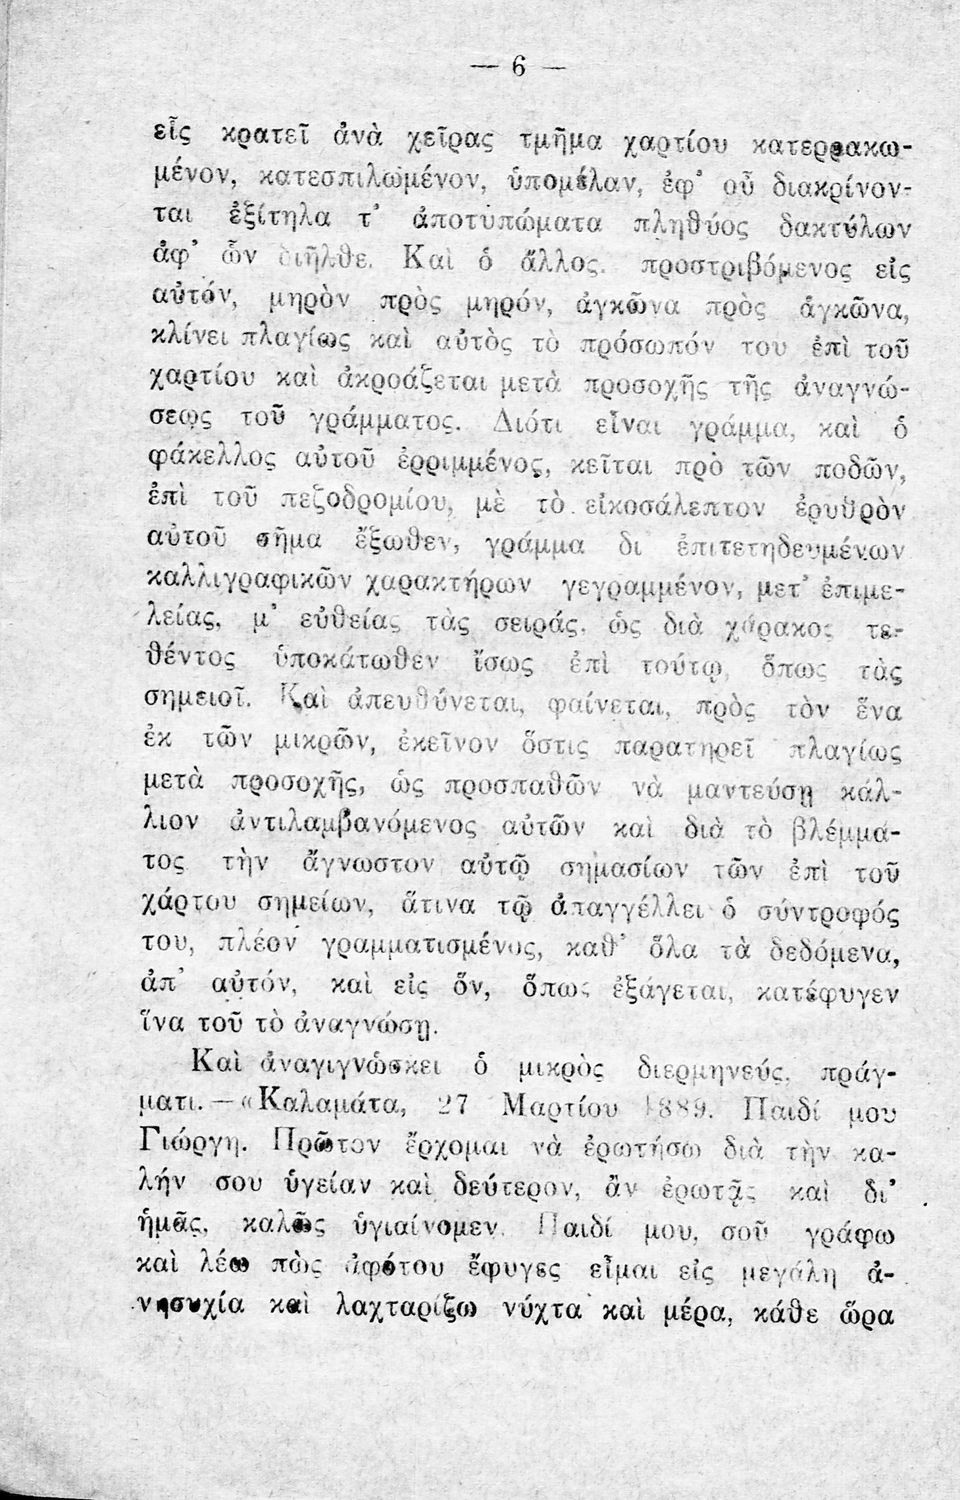 — 6 —
εἷς κρατεῖ ἀνὰ χεῖρας τμῆμα χαρτίου κατερρακω-
μένον, κατεσπιλωμένον, ὑπομέλαν, ἐφ᾽ οὗ διακρίνον-
ται ἐξίτηλα τ᾽ ἀποτυπώματα πληθύος δακτύλων
ἀφ᾽ ὧν διῆλθε. Καὶ ὁ ἄλλος. προστριβόμενος εἰς
αὐτόν, μηρὸν πρὸς μηρόν, ἀγκῶνα πρὸς ἀγκῶνα,
κλίνει πλαγίως καὶ αὐτὸς τὸ πρόσωπόν του ἐπὶ τοῦ
χαρτίου καὶ ἀκροάζεται μετὰ προσοχῆς τῆς ἀναγνώ-
σεως τοῦ γράμματος. Διότι εἶναι γράμμα, καὶ ὁ
φάκελλος αὐτοῦ ἐρριμμένος, κεῖται πρὸ τῶν ποδῶν,
ἐπὶ τοῦ πεζοδρομίου, μὲ τὸ εἰκοσάλεπτον ἐρυθρὸν
αὐτοῦ σῆμα ἔξωθεν, γράμμα δι᾽ ἐπιτετηδευμένων
καλλιγραφικῶν χαρακτήρων γεγραμμένον, μετ᾽ ἐπιμε-
λείας, μ᾽ εὐθείας τὰς σειράς, ὡς διὰ χάρακος τε-
θέντος ὑποκάτωθεν ἴσως ἐπὶ τούτῳ, ὅπως τὰς
σημειοῖ. Καὶ ἀπευθύνεται, φαίνεται, πρὸς τὸν ἕνα
ἐκ τῶν μικρῶν, ἐκεῖνον ὅστις παρατηρεῖ πλαγίως
μετὰ προσοχῆς, ὡς προσπαθῶν νὰ μαντεύσῃ κάλ-
λιον ἀντιλαμβανόμενος αὐτῶν καὶ διὰ τὸ βλέμμα-
τος τὴν ἄγνωστον αὐτῷ σημασίων τῶν ἐπὶ τοῦ
χάρτου σημείων, ἅτινα τῷ ἀπαγγέλλει ὁ σύντροφός
του, πλέον γραμματισμένος, καθ᾽ ὅλα τὰ δεδόμενα,
ἀπ᾽ αὐτόν, καὶ εἰς ὅν, ὅπως ἐξάγεται, κατέφυγεν
ἵνα τοῦ τὸ ἀναγνώσῃ.
Καὶ ἀναγιγνώσκει ὁ μικρὸς διερμηνεύς, πράγ-
ματι. — «Καλαμάτα, 27 Μαρτίου 1889. Παιδί μου
Γιώργη. Πρῶτον ἔρχομαι νὰ ἐρωτήσω διὰ τὴν κα-
λήν σου ὑγείαν καὶ δεύτερον, ἂν ἐρωτᾷς καὶ δι᾽
ἡμᾶς, καλῶς ὑγιαίνομεν. Παιδί μου, σοῦ γράφω
καὶ λέω πὼς ἀφότου ἔφυγες εἶμαι εἰς μεγάλη ἀ-
νησυχία καὶ λαχταρίζω νύχτα καὶ μέρα, κάθε ὥρα